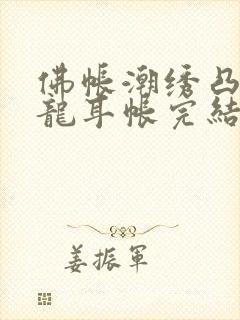 佛帐潮绣凸
龍耳帐完結
姜振軍